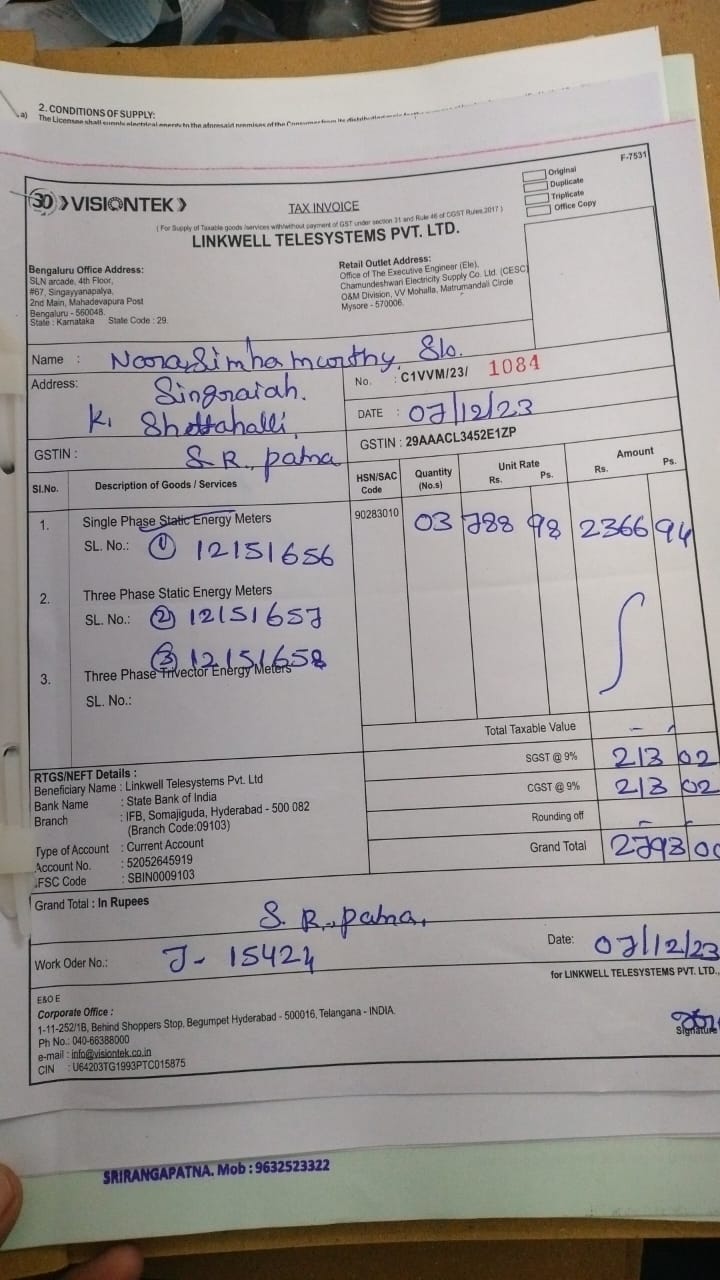 2. CONDITIONS OF SUPPLY:
a) The Licensee shall supply electrical energy to the aforesaid premises of the Consumer from its
F-7531
Original
Duplicate
Triplicate
Office Copy
30 VISIONTEK
TAX INVOICE
( For Supply of Taxable goods /services with/without payment of GST under section 31 and Rule 46 of CGST Rules,2017 )
LINKWELL TELESYSTEMS PVT. LTD.
Bengaluru Office Address:
SLN arcade, 4th Floor,
#67, Singayyanapalya,
2nd Main, Mahadevapura Post
Bengaluru - 560048.
State : Karnataka State Code : 29.
Retail Outlet Address:
Office of The Executive Engineer (Ele),
Chamundeshwari Electricity Supply Co. Ltd. (CESC)
O&M Division, VV Mohalla, Matrumandali Circle
Mysore - 570006.
Name : Narasimhamurthy S/o.
Address: Singraiah.
K. Shettahalli,
S R., patna
No. : C1VVM/23/ 1084
DATE : 07/12/23
GSTIN :
GSTIN : 29AAACL3452E1ZP
Sl.No. Description of Goods / Services HSN/SAC Code Quantity (No.s) Unit Rate Rs. Ps. Amount Rs. Ps.
1. Single Phase Static Energy Meters 90283010 03 788 98 2366 94
SL. No.: (1) 12151656
2. Three Phase Static Energy Meters
SL. No.: (2) 12151657
(3) 12151658
3. Three Phase Trivector Energy Meters
SL. No.:
Total Taxable Value - -
SGST @ 9% 213 02
CGST @ 9% 213 02
Rounding off - -
Grand Total 2793 00
RTGS/NEFT Details :
Beneficiary Name : Linkwell Telesystems Pvt. Ltd
Bank Name : State Bank of India
Branch : IFB, Somajiguda, Hyderabad - 500 082
(Branch Code:09103)
Type of Account : Current Account
Account No. : 52052645919
IFSC Code : SBIN0009103
Grand Total : In Rupees
S. R., patna.
Work Oder No.: J- 15424
Date: 07/12/23
for LINKWELL TELESYSTEMS PVT. LTD.,
E&O E
Corporate Office :
1-11-252/1B, Behind Shoppers Stop, Begumpet Hyderabad - 500016, Telangana - INDIA.
Ph No.: 040-66388000
e-mail : info@visiontek.co.in
CIN : U64203TG1993PTC015875
Signature
SRIRANGAPATNA. Mob : 9632523322